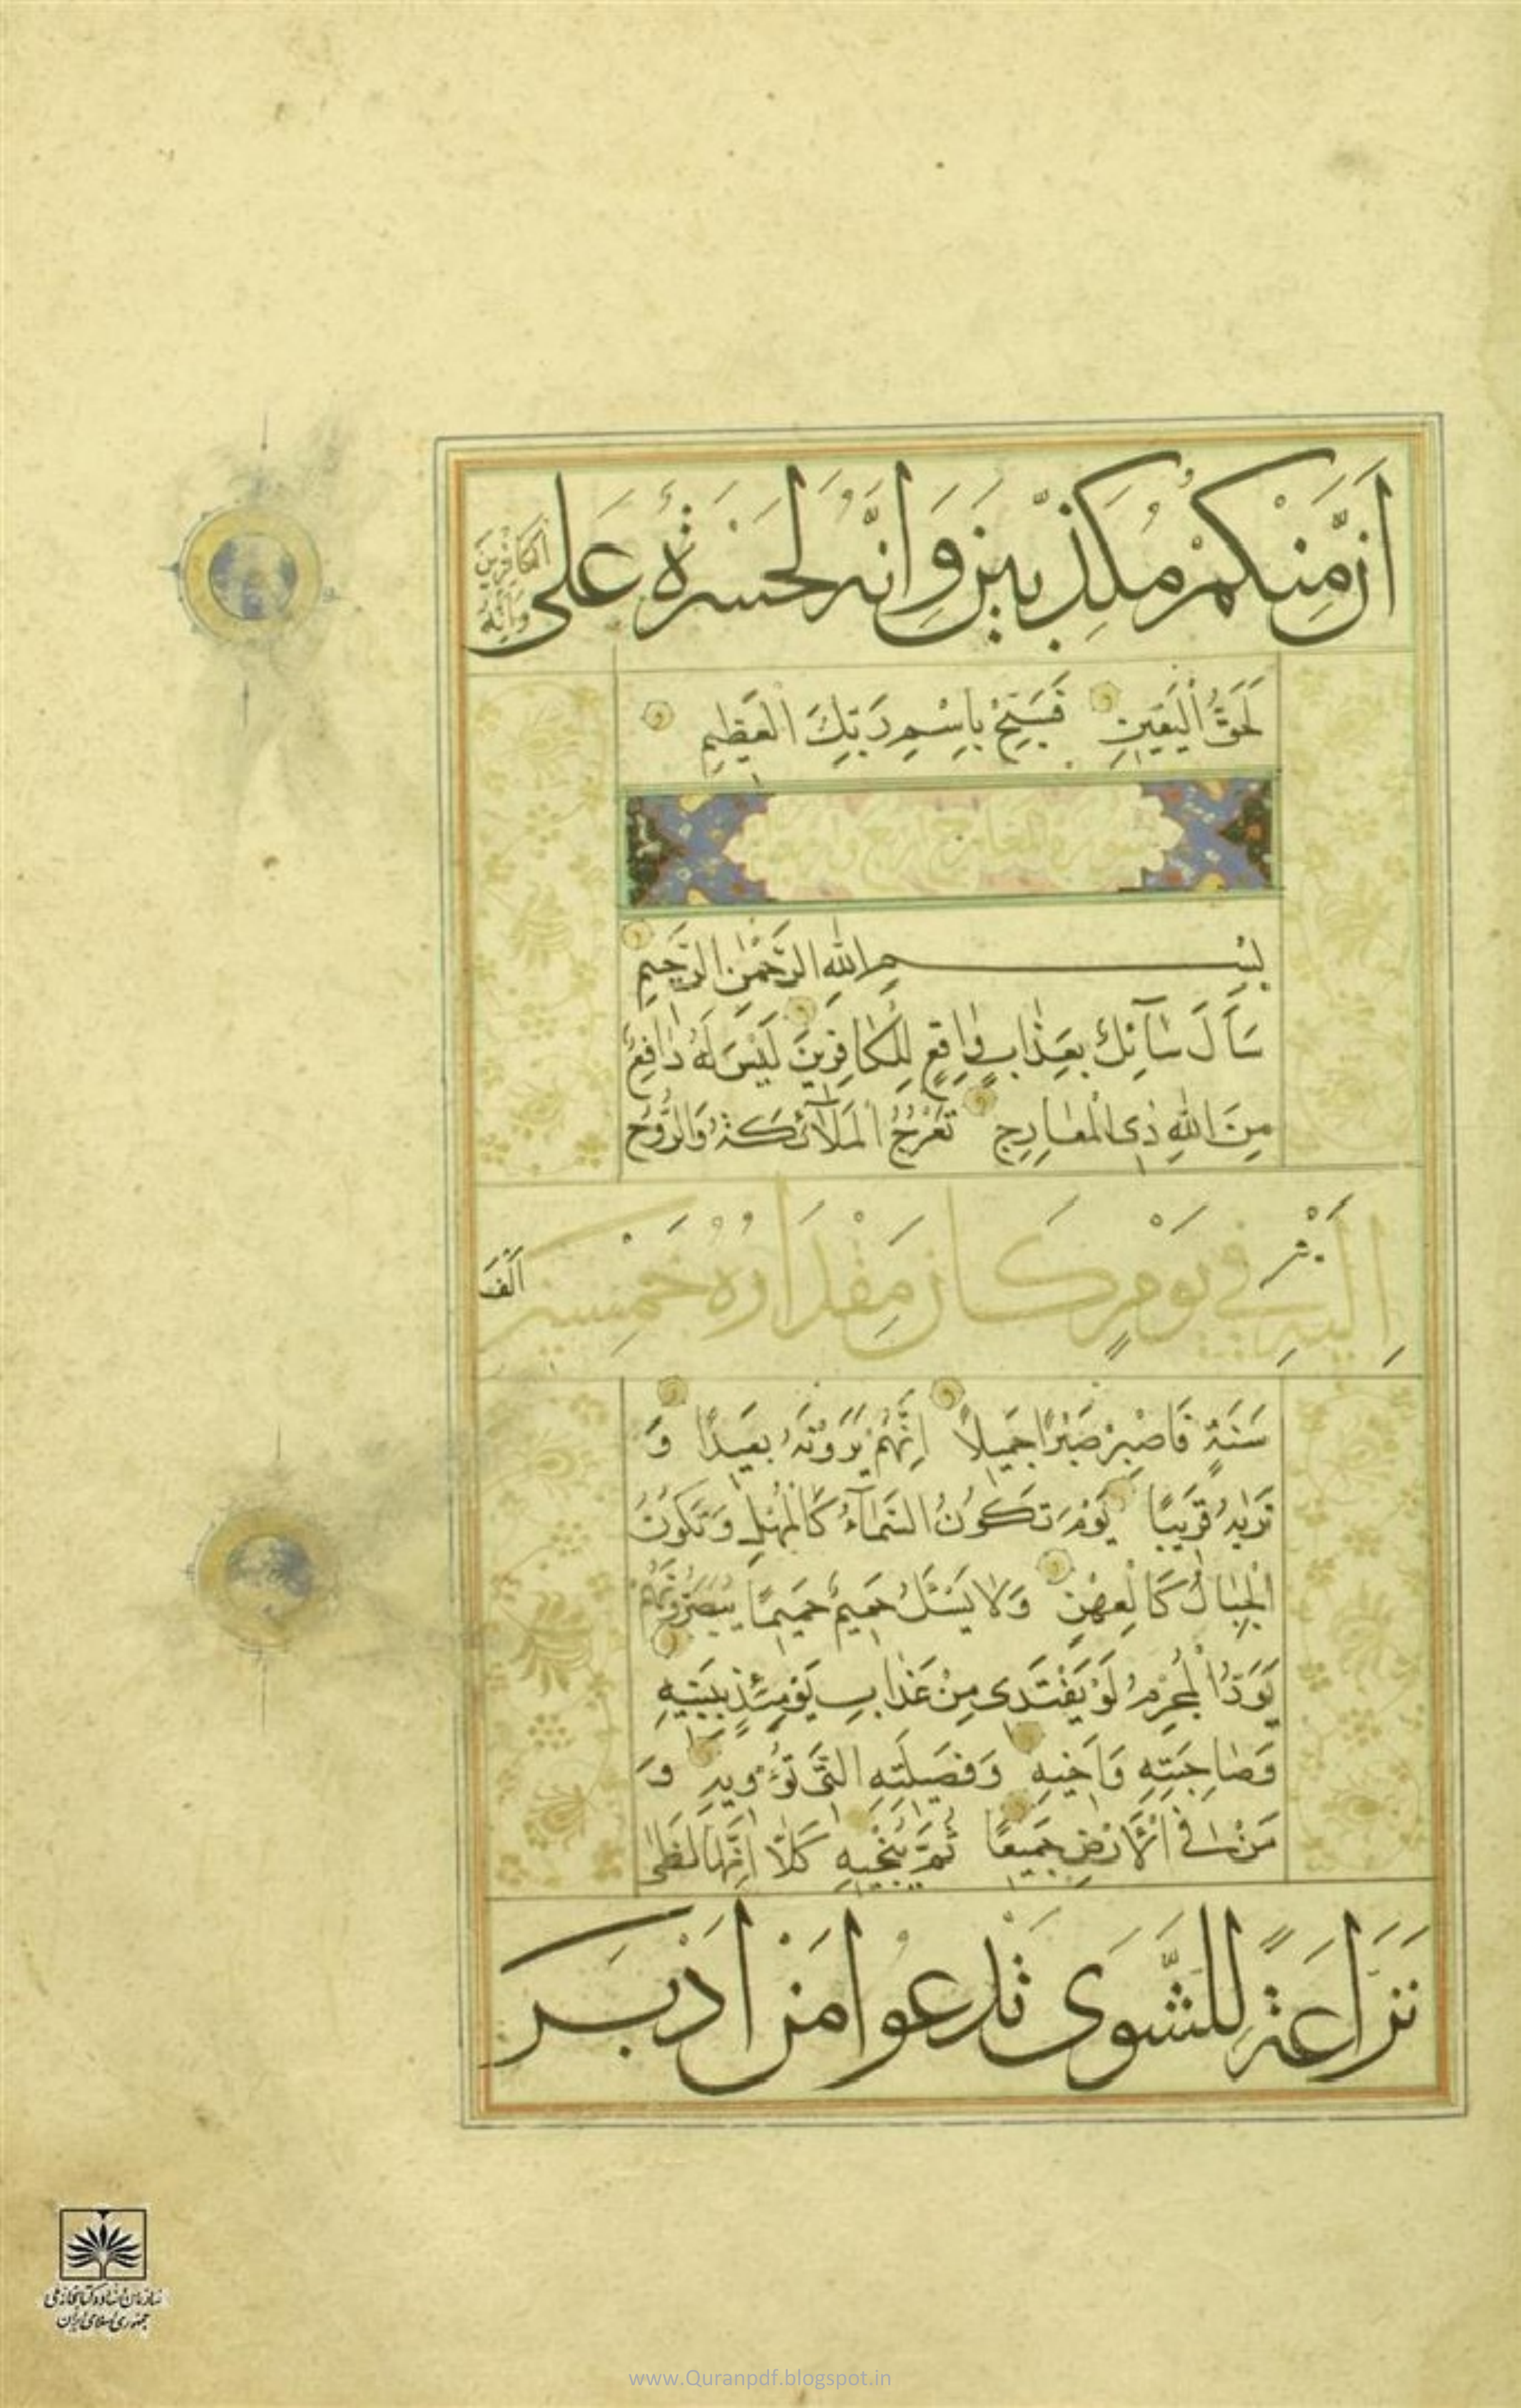 اَنَّ مِنْكُمْ مُكَذِّبينَ وَاِنَّهُ لَحَسْرَةٌ عَلَى
الكَافِرينَ
وَاِنَّهُ
لَحَقُّ الْيَقينِ فَسَبِّحْ بِاسْمِ رَبِّكَ الْعَظيمِ
بِسْمِ اللهِ الرَّحْمٰنِ الرَّحيمِ
سَأَلَ سَآئِلٌ بِعَذٰابٍ وٰاقِعٍ لِلْكٰافِرينَ لَيْسَ لَهُ دٰافِعٌ
مِنَ اللهِ ذِى الْمَعٰارِجِ تَعْرُجُ الْمَلٰآئِكَةُ وَالرُّوحُ
اِلَيْهِ في يَوْمٍ كَانَ مِقْدَارُهُ خَمْسينَ
اَلْفَ
سَنَةٍ فَاصْبِرْ صَبْرًا جَميلاً اِنَّهُمْ يَرَوْنَهُ بَعيدًا وَ
نَرٰيهُ قَريبًا يَوْمَ تَكُونُ السَّمٰآءُ كَالْمُهْلِ وَتَكُونُ
الْجِبٰالُ كَالْعِهْنِ وَلٰا يَسْئَلُ حَميمٌ حَميمًا يُبَصَّرُونَهُمْ
يَوَدُّ الْمُجْرِمُ لَوْ يَفْتَدى مِنْ عَذٰابِ يَوْمِئِذٍ بِبَنيهِ
وَصٰاحِبَتِهِ وَاَخيهِ وَفَصيلَتِهِ الَّتى تُؤْويهِ وَ
مَنْ فِى الْاَرْضِ جَميعًا ثُمَّ يُنْجيهِ كَلّٰا اِنَّهٰا لَظٰى
نَزَّاعَةً لِلشَّوَى تَدْعُوا مَنْ اَدْبَرَ
سازمان اسناد و کتابخانه ملی
جمهوری اسلامی ایران
www.Quranpdf.blogspot.in